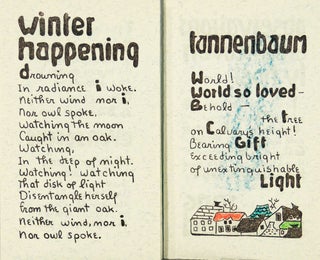 winter
happening
drowning
In radiance i woke.
Neither wind nor i,
Nor owl spoke,
Watching the moon
Caught in an oak.
Watching,
In the deep of night.
Watching! watching
That disk of light
Disentangle herself
from the giant oak.
Neither wind, nor i.
Nor owl spoke.
tannenbaum
World!
World so loved-
Behold -
the tree
on Calvary's height!
Bearing Gift
Exceeding bright
of unextinguishable
Light